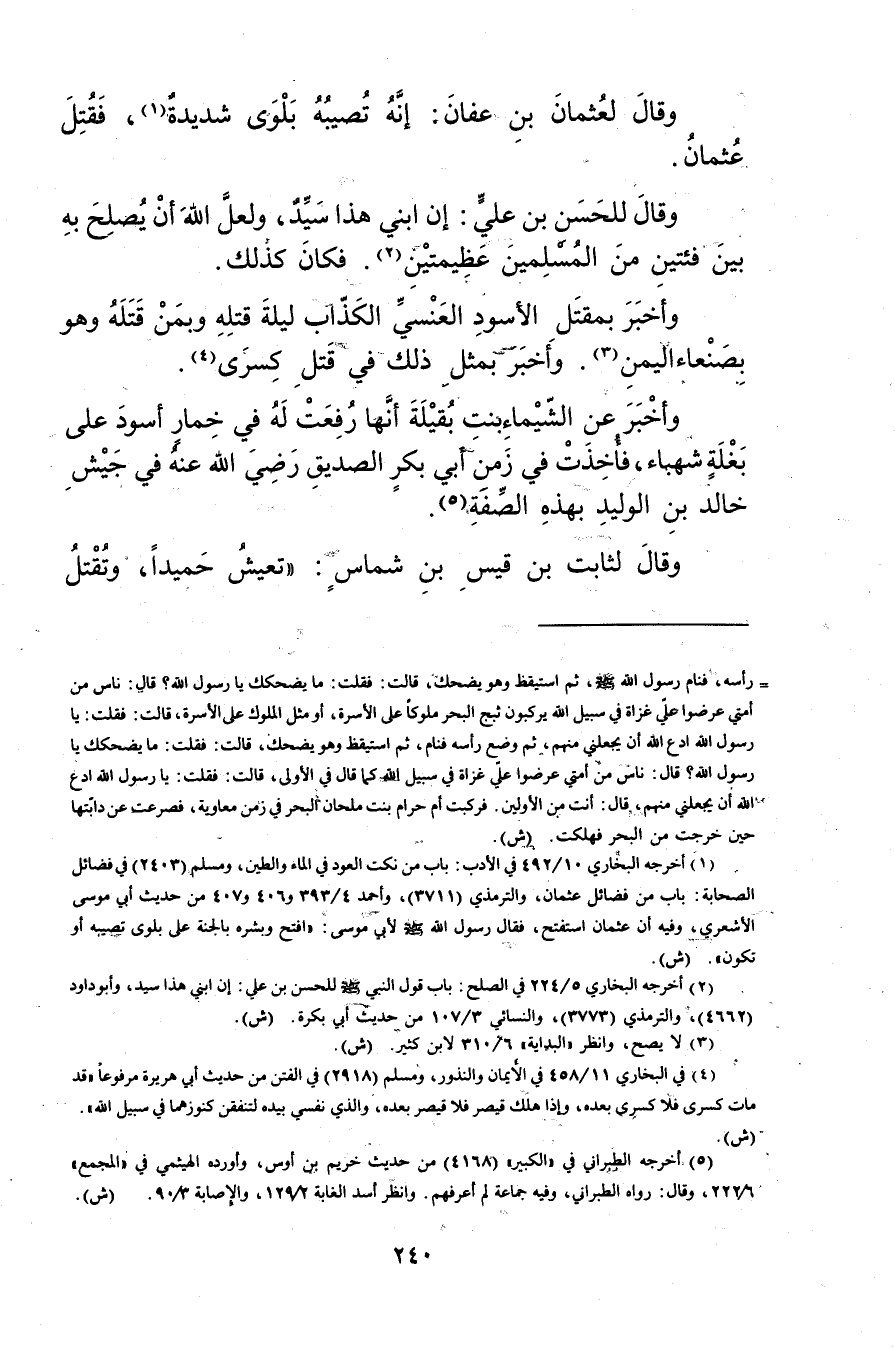 وقالَ لعُثمانَ بنِ عفانَ: إنَّهُ تُصيبُهُ بَلْوَى شديدةٌ(١)، فَقُتِلَ
عُثمانُ.
وقالَ للحَسَنِ بن عليٍّ: إن ابني هذا سَيِّدٌ، ولعلَّ اللهَ أنْ يُصلِحَ بهِ
بينَ فئتينِ منَ المُسْلِمينَ عَظِيمتيْنِ(٢). فكانَ كذٰلك.
وأخبَرَ بمقتَلِ الأسودِ العَنْسيِّ الكَذّابِ ليلةَ قتلِهِ وبمَنْ قَتَلَهُ وهو
بِصَنْعاءاليمنِ(٣). وأَخبَرَ بمثلِ ذلك في قَتلِ كِسرَى(٤).
وأخْبَرَ عن الشّيْماءِبنتِ بُقيْلَةَ أنَّها رُفِعَتْ لَهُ في خِمارٍ أسودَ على
بَغْلَةٍ شهباء، فأُخِذَتْ في زَمنِ أبي بكرٍ الصديقِ رَضِيَ الله عنهُ في جَيْشِ
خالد بن الوليدِ بهذهِ الصِّفَةِ(٥).
وقالَ لثابت بن قيسِ بنِ شماسٍ: «تعيشُ حَميداً، وتُقْتلُ
= رأسه، فنام رسول الله ﷺ، ثم استيقظ وهو يضحك، قالت: فقلت: ما يضحكك يا رسول الله؟ قال: ناس من
أمتي عرضوا عليّ غزاة في سبيل الله يركبون ثبج البحر ملوكاً على الأسرة، أو مثل الملوك على الأسرة، قالت: فقلت: يا
رسول الله ادع الله أن يجعلني منهم، ثم وضع رأسه فنام، ثم استيقظ وهو يضحك، قالت: فقلت: ما يضحكك يا
رسول الله؟ قال: ناس من أمتي عرضوا عليّ غزاة في سبيل الله كما قال في الأولى، قالت: فقلت: يا رسول الله ادع
الله أن يجعلني منهم، قال: أنت من الأولين. فركبت أم حرام بنت ملحان البحر في زمن معاوية، فصرعت عن دابتها
حين خرجت من البحر فهلكت. (ش).
(١) أخرجه البخاري ٤٩٢/١٠ في الأدب: باب من نكت العود في الماء والطين، ومسلم (٢٤٠٣) في فضائل
الصحابة: باب من فضائل عثمان، والترمذي (٣٧١١)، وأحمد ٣٩٣/٤ و٤٠٦ و٤٠٧ من حديث أبي موسى
الأشعري، وفيه أن عثمان استفتح، فقال رسول الله ﷺ لأبي موسى: «افتح وبشره بالجنة على بلوى تصيبه أو
تكون». (ش).
(٢) أخرجه البخاري ٢٢٤/٥ في الصلح: باب قول النبي ﷺ للحسن بن علي: إن ابني هذا سيد، وأبوداود
(٤٦٦٢)، والترمذي (٣٧٧٣)، والنسائي ١٠٧/٣ من حديث أبي بكرة. (ش).
(٣) لا يصح، وانظر «البداية» ٣١٠/٦ لابن كثير. (ش).
(٤) في البخاري ٤٥٨/١١ في الأيمان والنذور، ومسلم (٢٩١٨) في الفتن من حديث أبي هريرة مرفوعاً «قد
مات كسرى فلا كسرى بعده، وإذا هلك قيصر فلا قيصر بعده، والذي نفسي بيده لتنفقن كنوزهما في سبيل الله».
(ش).
(٥) أخرجه الطبراني في «الكبير» (٤١٦٨) من حديث خريم بن أوس، وأورده الهيثمي في «المجمع»
٢٢٢/٦، وقال: رواه الطبراني، وفيه جماعة لم أعرفهم. وانظر أسد الغابة ١٢٩/٢، والإصابة ٩٠/٣. (ش).
٢٤٠